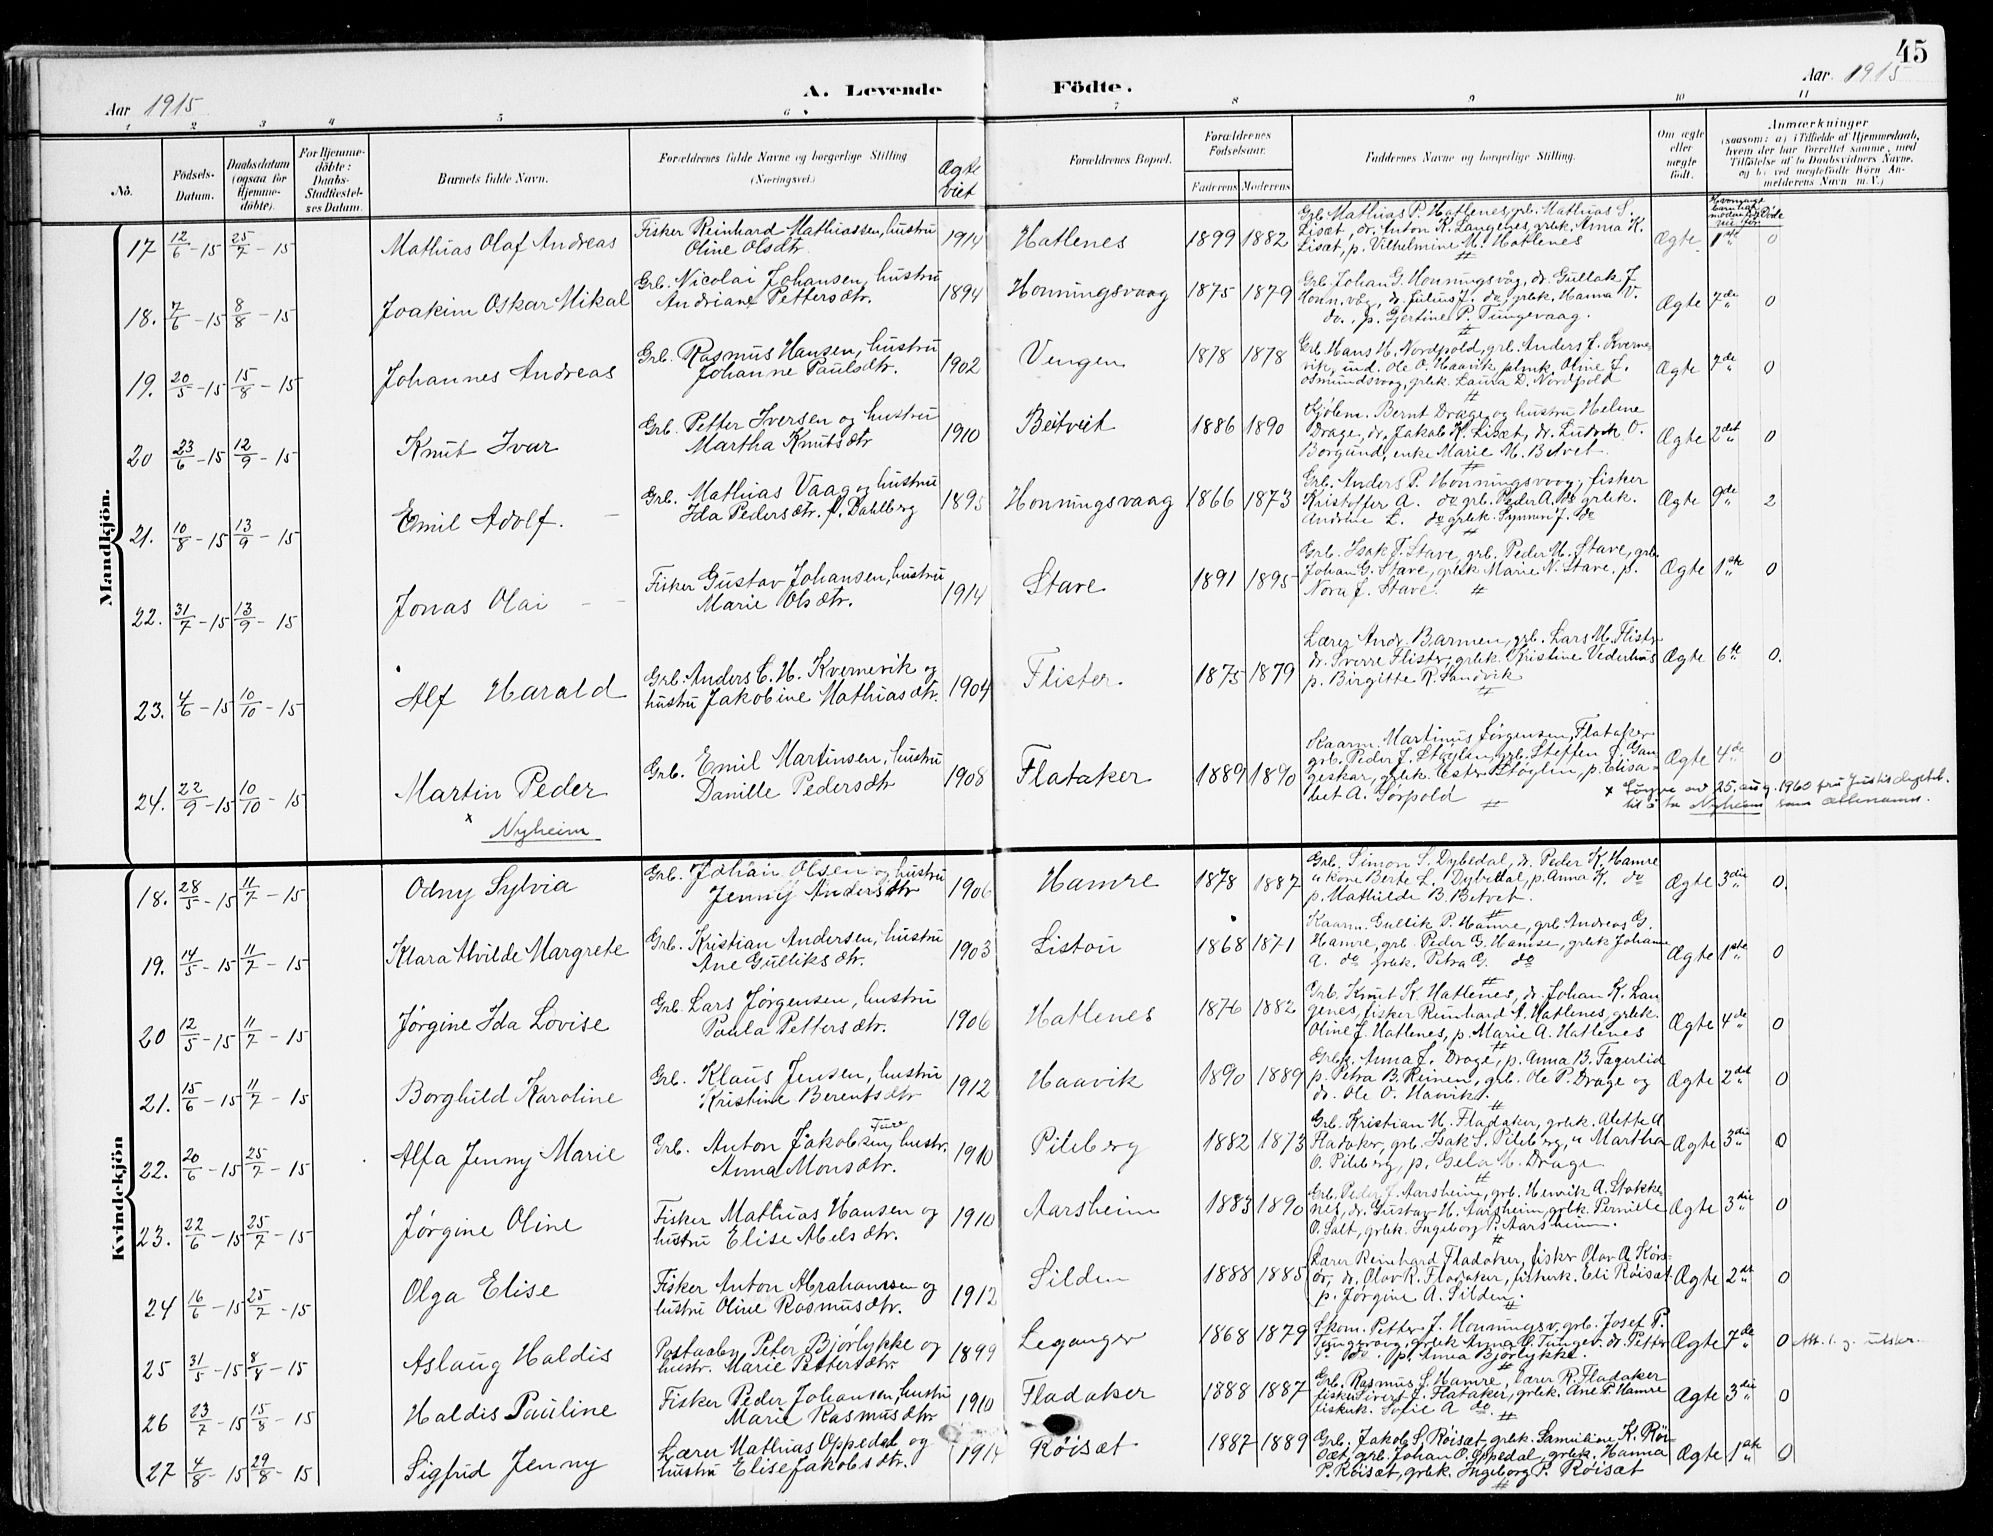 45
Aar 1915
A. Levende Födte.
Aar 1915
1 2 3 4 5 6 7 8 9 10 11
No.
Födsels-Datum.
Daabsdatum (ogsaa for Hjemme-döbte).
For Hjemme-döbte: Daabs-Stadfæstel-ses Datum.
Barnets fulde Navn.
Forældrenes fulde Navne og borgerlige Stilling (Næringsvei.)
Ægte viet
Forældrenes Bopæl.
Forældrenes Födselsaar.
Faderens Moderens
Faddernes Navne og borgerlige Stilling.
Om ægte eller uægte födt.
Anmærkninger
(saasom: a) i Tilfælde af Hjemmedaab,
hvem der har forrettet samme, med
Tilföielse af to Daabsvidners Navne,
og b) ved uægtefödte Börn An-
melderens Navn m. V.)
Mandkjön.
17 12/6 - 15 25/7 - 15 Mathias Olaf Andreas Fisker Reinhard Mathiassen, hustru Oline Olsdtr. 1914 Hatlenes 1899 1882 Grb. Mathias P. Hatlenes, grb. Mathias S. Lisæt, dr. Anton K. Langenes, grlek. Anna K. Lisæt, p. Vilhelmine M. Hatlenes Ægte 1ste 0
18. 7/6 - 15 8/8 - 15 Joakim Oskar Mikal Grb. Nicolai Johansen, hustru Andriane Pettersdtr. 1894 Honningsvaag 1875 1879 Grb. Johan G. Honningsvåg, dr. Gullak J. Honn.våg, dr. Julius J. do, grlek. Hanna V. do., p. Gjertine P. Tungevaag. Ægte 7de 0
19. 20/5 - 15 15/8 - 15 Johannes Andreas Grb. Rasmus Hansen, hustru Johanne Paulsdtr. 1902 Vengen 1878 1878 Grb. Hans H. Nordpold, grb. Anders J. Kverne-vik, ind. Ole O. Haavik, Oline J. Osmundsvaag, grlek. Laura D. Nordpold Ægte 7de 0
20 23/6 - 15 12/9 - 15 Knut Ivar Grb. Petter Iversen og hustru Martha Knutsdtr 1910 Betvet 1886 1890 Bernt Drage og hustru Helene Drage, dr. Jakob K. Lisæt, dr. Ludvik O. Borgund, enke Marie M. Betvet. Ægte 2det 0
21. 10/8 - 15 13/9 - 15 Emil Adolf. Grb. Mathias Vaag og hustru Ida Pedersdtr. f. Dahlberg 1895 Honningsvaag 1866 1873 Grb. Anders P. Honningsvaag, fisker Kristoffer A. do grb. Peder A. do grlek. Andrine L. do grlek. Synnøv J. do Ægte 9de 2
22. 31/7 - 15 13/9 - 15 Jonas Olai Fisker Gustav Johansen, hustru Marie Olsdtr. 1914 Stave 1891 1895 Grb. Isak T. Stave, grb. Peder M. Stave, grb. Johan G. Stave, grlek Marie N. Stave, p. Nora J. Stave. Ægte 1ste 0
23. 4/6 - 15 10/10 - 15 Alf Harald Grb. Anders C. H. Kvernevik og hustru Jakobine Mathiasdtr. 1904 Flister. 1875 1879 Lærer Andr. Barmen, grb. Lars M. Flister dr. Sverre Flister, grlek. Kristine Vederhus p. Birgitte R. Sandvik Ægte 6te 0.
24. 22/9 - 15 10/10 - 15 Martin Peder x Nyheim Grb. Emil Martinsen, hustru Danille Pedersdtr 1908 Flataker 1889 1890 Kaarm. Martinus Jørgensen, Flataker grb. Peder J. Støylen, grb. Steffen J. Gan-geskar, grlek. Ester Støylen, p. Elisa-bet A. Sørpold Ægte 4de 0
x Løyve av 25. aug. 1960 frå Justisdepartet. til å ta Nyheim som ættenamn.
Kvindekjön
18. 28/5 - 15 11/7 - 15 Odny Sylvia Grb. Johan Olsen og hustru Jenny Andersdtr 1906 Hamre 1878 1887 Grb. Simon S. Dybedal, dr. Peder K. Hamre u kone Berte L. Dybedal, p. Anna K. do p. Mathilde B. Betvet. Ægte 3die 0.
19. 14/5 - 15 11/7 - 15 Klara Alvilde Margrete Grb. Kristian Andersen, hustru Ane Gulliksdtr. 1903 Listou 1868 1871 Kaarm. Gullik P. Hamre, grb. Andreas G. Hamre, grb. Peder G. Hamre, grlek Johanne A. do grlek. Petra G. do Ægte 1ste 0
20 12/5 - 15 11/7 - 15 Jørgine Ida Lovise Grb. Lars Jørgensen, hustru Paula Pettersdtr. 1906 Hatlenes 1876 1882 Grb. Knut K. Hatlenes, dr. Johan K. Lan-genes, fisker Reinhard A. Hatlenes, grlek. Oline J. Hatlenes, p. Marie A. Hatlenes Ægte 4de 0
21. 15/6 - 15 11/7 - 15 Borghild Karoline Grb. Klaus Jensen, hustru Kristine Berentsdtr 1912 Haavik 1890 1889 Grlek. Anna L. Drage, p. Anna B. Fagerlid p. Petra B. Reinen, grb. Ole P. Drage og dr. Ole O. Haavik. Ægte 2det 0
22. 20/6 - 15 25/7 - 15 Alfa Jenny Marie Grb. Anton Jakobsen Ture, hustr. Anna Monsdtr. 1910 Pileberg 1882 1873 Grb. Kristian M. Fladaker, grlek. Alette A Fladaker, grb. Isak S. Pileberg, u Martha O. Pileberg, p. Gela M. Drage Ægte 3die 0
23. 22/6 - 15 25/7 - 15 Jørgine Oline Fisker Mathias Hansen og hustru Elise Abelsdtr. 1910 Aarsheim 1883 1890 Grb. Peder J. Aarsheim, grb. Henrik A. Stokke-nes, dr. Gustav H. Aarsheim, grlek. Pernille O. Salt, grlek. Ingeborg P. Aarsheim. Ægte 3die 0
24 16/6 - 15 25/7 - 15 Olga Elise Fisker Anton Abrahamsen og hustru Oline Rasmusdtr. 1912 Silden 1888 1885 Lærer Reinhard Fladaker, fisker Olav A. dr. Olav R. Fladaker, fiskerk. Eli Røisæt p. Jørgine A. Silden. Ægte 2det 0
25 31/5 - 15 8/8 - 15 Aslaug Haldis Postaabn. Peter Bjørlykke og hustr. Marie Pettersdtr 1899 Leganger 1868 1879 Skom. Petter J. Honningsv, grb. Josef P. Tungevaag, grlek Anna G. Tungev. dr. Petter do. p. Anna Bjørlykke. Ægte 7de 0 Att. utskr.
26 23/7 - 15 15/8 - 15 Haldis Pauline Fisker Peder Johansen, hustru Marie Rasmusdtr 1910 Fladaker 1888 1887 Grb. Rasmus S. Hamre, lærer R. Fladaker fisker Sivert J. Flataker, grlek. Ane P. Hamre fiskerk. Sofie A do. Ægte 3die 0
27 4/8 - 15 29/8 - 15 Sigfrid Jenny Lærer Mathias Oppedal og hustru Elise Jakobsdtr. 1914 Røisæt 1887 1889 Grb. Jakob S. Røisæt, grlek. Samuline K. Røi-sæt, grb. Johan O. Oppedal, grlek. Hanna P. Røisæt, grlek. Ingeborg P. Røisæt Ægte 1ste 0